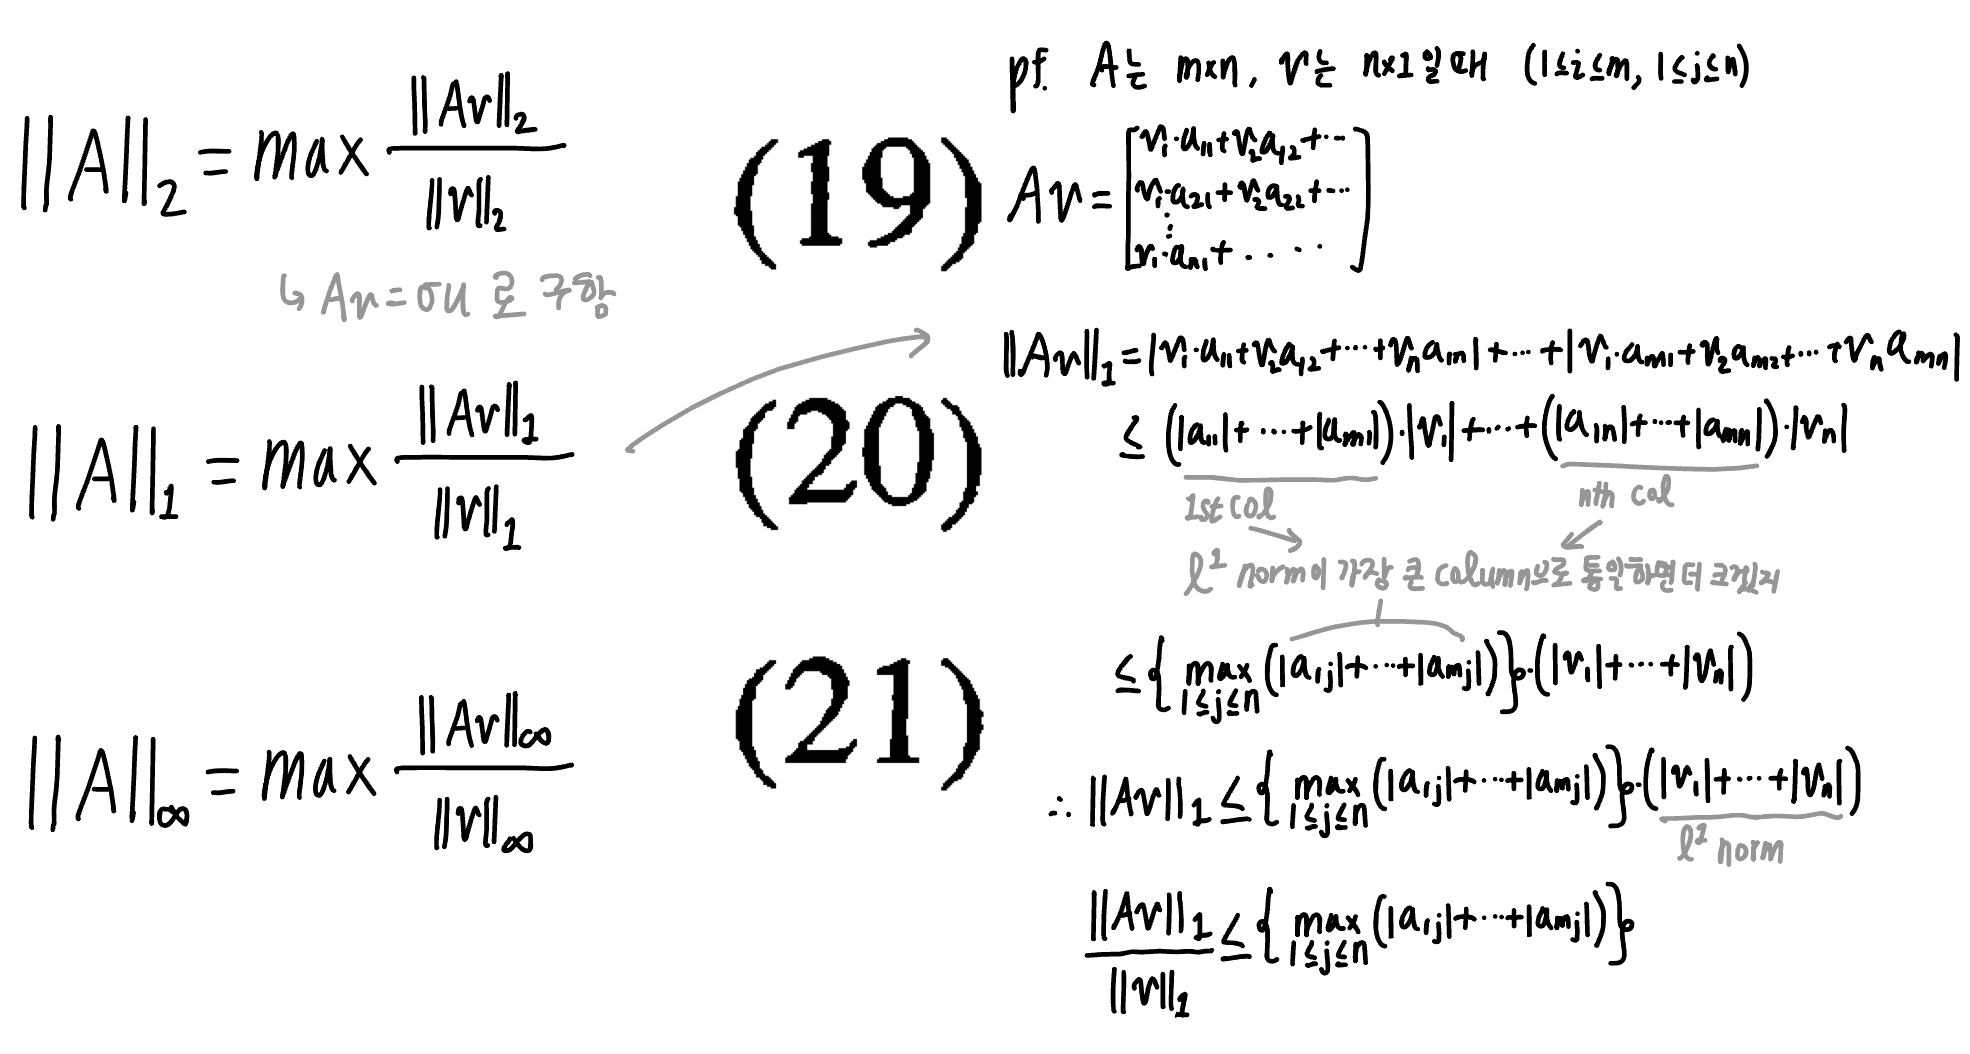 ||A||₂ = max ||Av||₂ / ||v||₂ (19)
↳ Av = σu 로 구함
||A||₁ = max ||Av||₁ / ||v||₁ (20)
||A||∞ = max ||Av||∞ / ||v||∞ (21)
pf. A는 m×n, v는 n×1일 때 (1≤i≤m, 1≤j≤n)
Av = [v₁·a₁₁+v₂a₁₂+⋯
v₁·a₂₁+v₂a₂₂+⋯
⋮
v₁·aₙ₁+ ....]
||Av||₁ = |v₁·a₁₁+v₂a₁₂+⋯+vₙa₁ₙ|+⋯+|v₁·aₘ₁+v₂aₘ₂+⋯+vₙaₘₙ|
≤ (|a₁₁|+⋯+|aₘ₁|)·|v₁|+⋯+(|a₁ₙ|+⋯+|aₘₙ|)·|vₙ|
1st col nth col
ℓ¹ norm이 가장 큰 column으로 통일하면 더 크겠지
≤ { max 1≤j≤n (|a₁ⱼ|+⋯+|aₘⱼ|)}·(|v₁|+⋯+|vₙ|)
∴ ||Av||₁ ≤ { max 1≤j≤n (|a₁ⱼ|+⋯+|aₘⱼ|)}·(|v₁|+⋯+|vₙ|)
ℓ¹ norm
||Av||₁ / ||v||₁ ≤ { max 1≤j≤n (|a₁ⱼ|+⋯+|aₘⱼ|)}